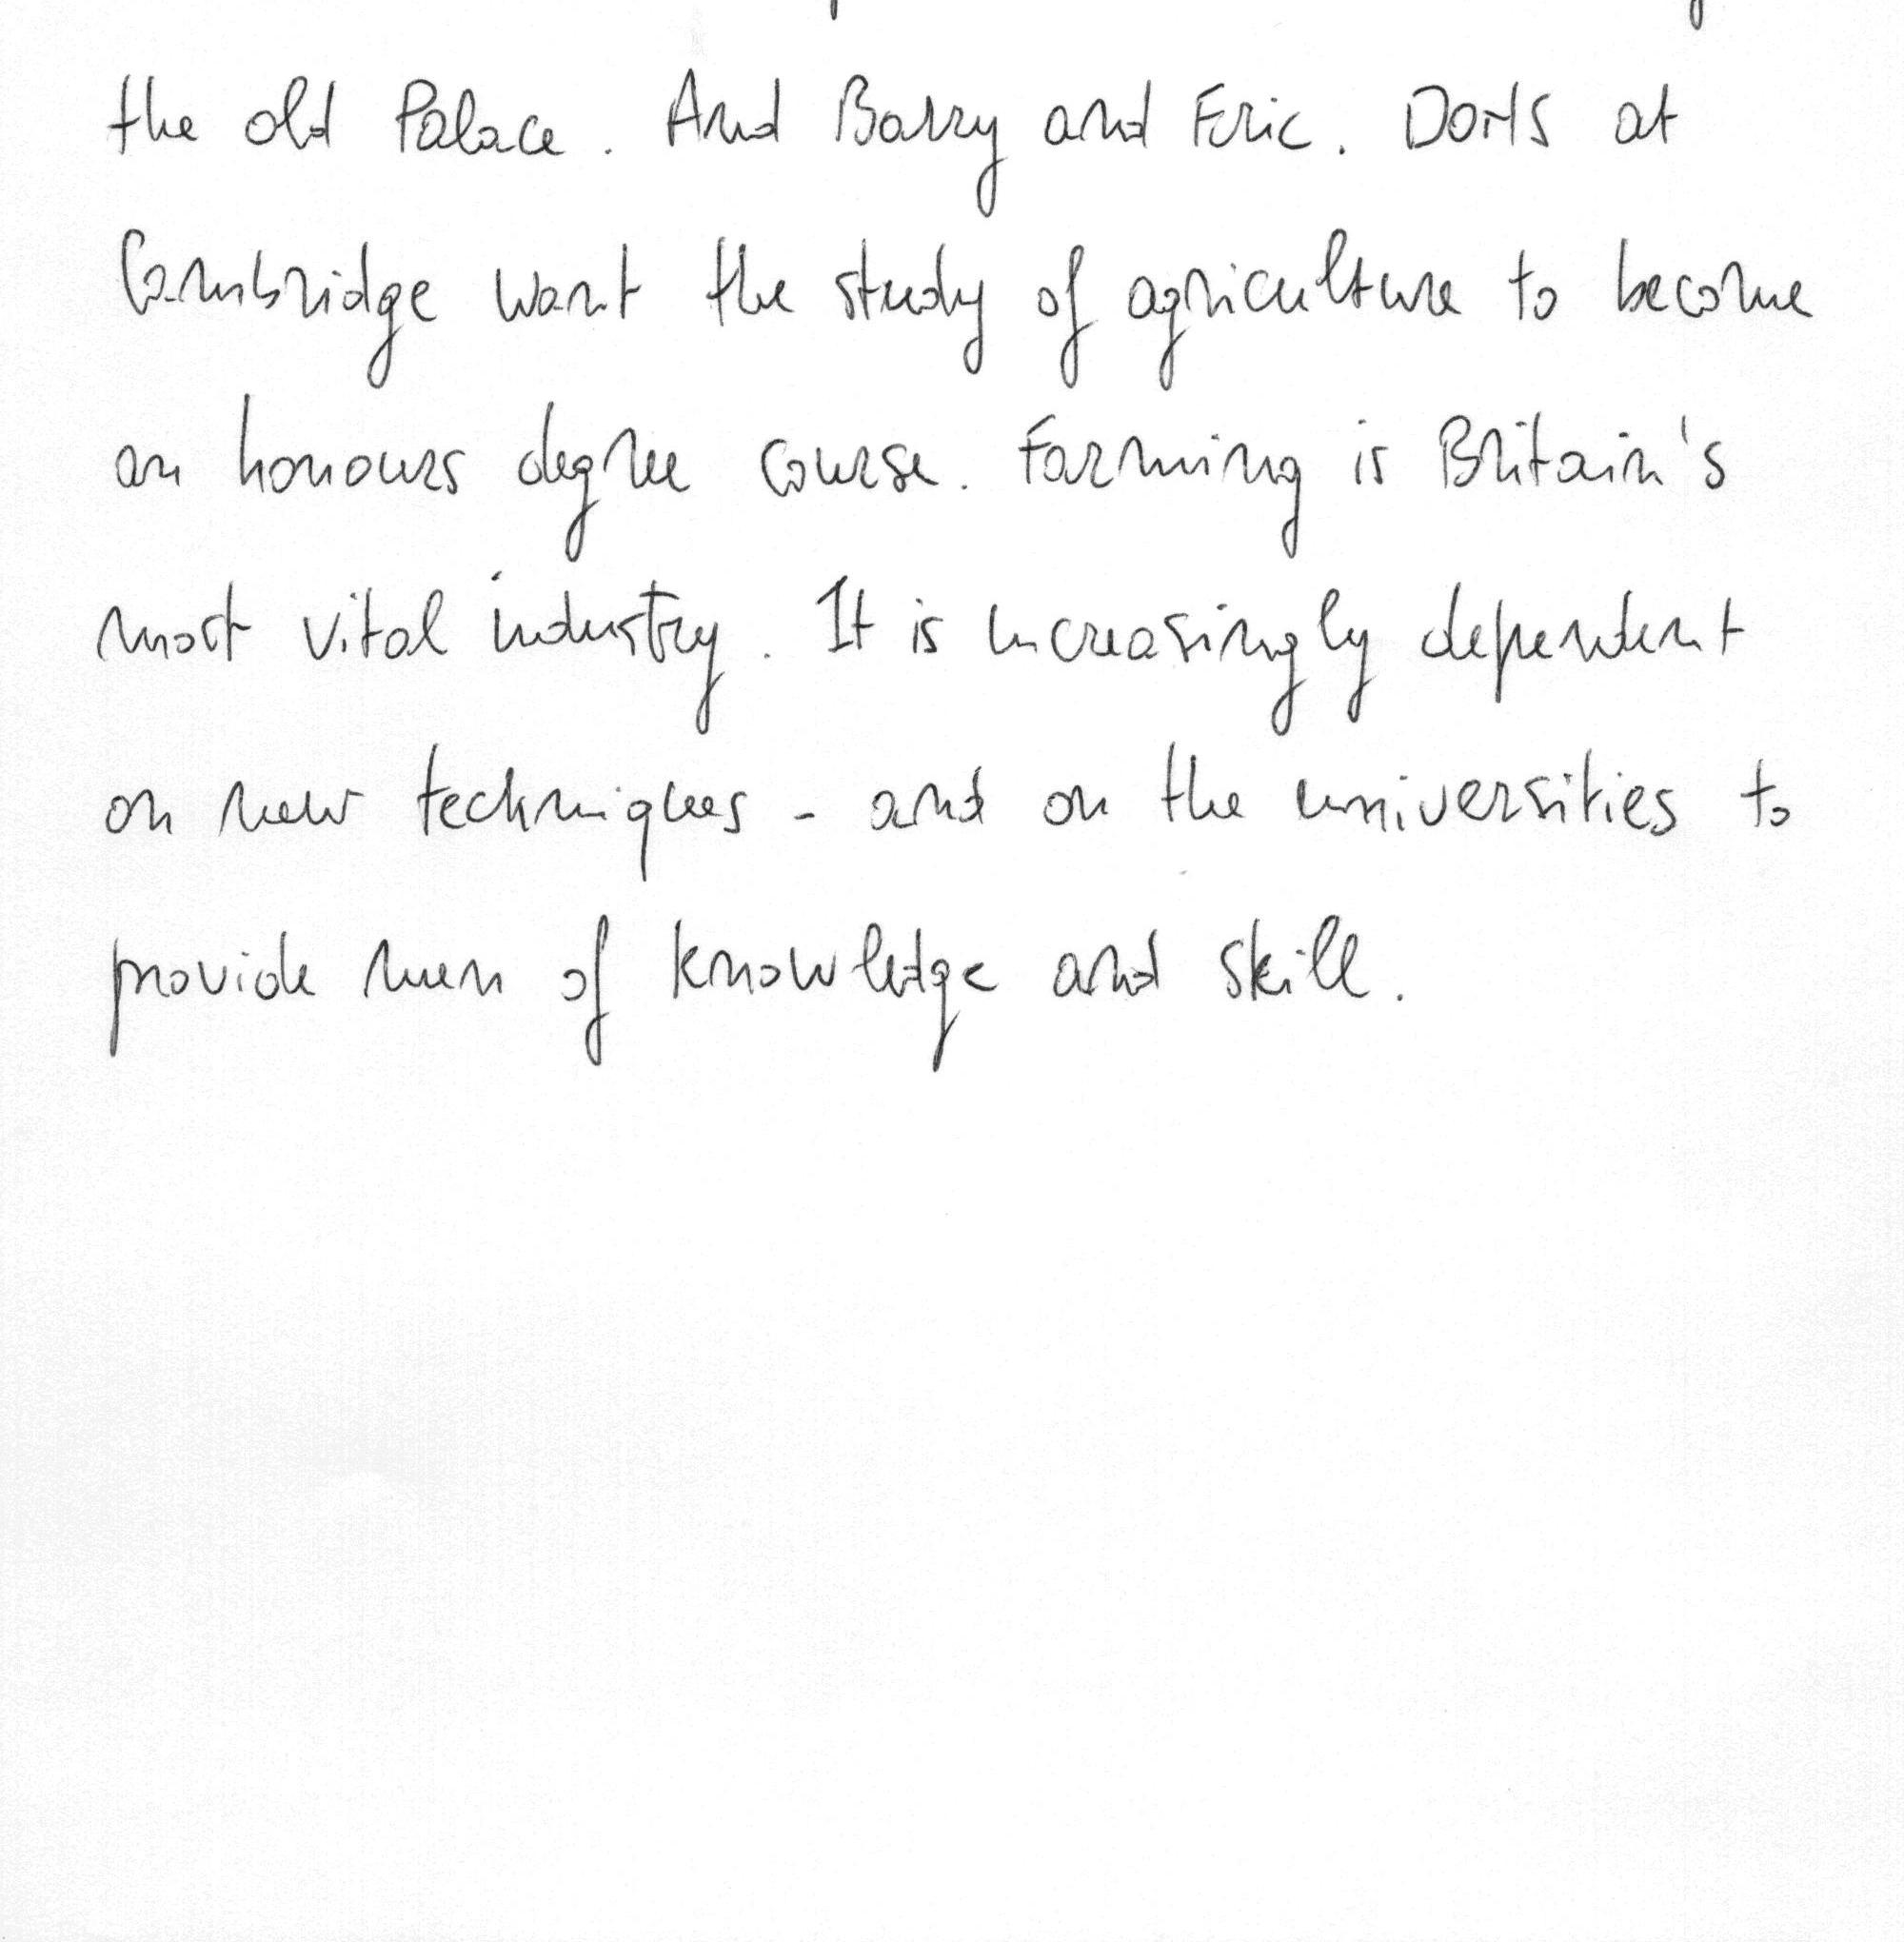 the old Palace. And Barry and Eric. DONS at
Cambridge want the study of agriculture to become
an honours degree course. Farming is Britain's
most vital industry. It is increasingly dependent
on new techniques - and on the universities to
provide men of knowledge and skill.